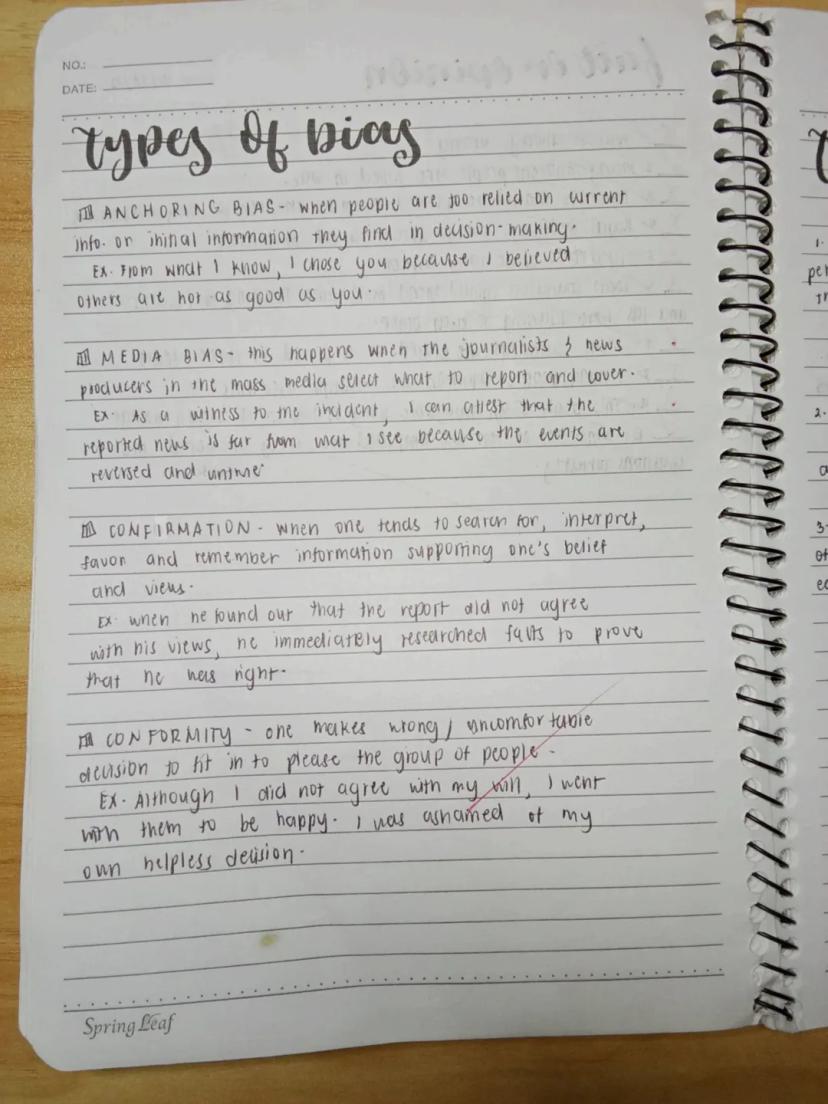 NO.:
DATE:
types of bias
ANCHORING BIAS - when people are too relied on current
info. or initial information they find in decision-making.
Ex. From what I know, I chose you because I believed
others are not as good as you.
MEDIA BIAS - this happens when the journalists & news
producers in the mass media select what to report and cover.
Ex. As a witness to the incident, I can attest that the
reported news is far from what I see because the events are
reversed and untrue
CONFIRMATION - when one tends to search for, interpret,
favor and remember information supporting one's belief
and views.
Ex. when he found out that the report did not agree
with his views, he immediately researched facts to prove
that he was right.
CONFORMITY - one makes wrong / uncomfortable
decision to fit in to please the group of people.
Ex. Although I did not agree with my will, I went
with them to be happy. I was ashamed of my
own helpless decision.
Spring Leaf
1.
per
2.
a
3.
of
ec